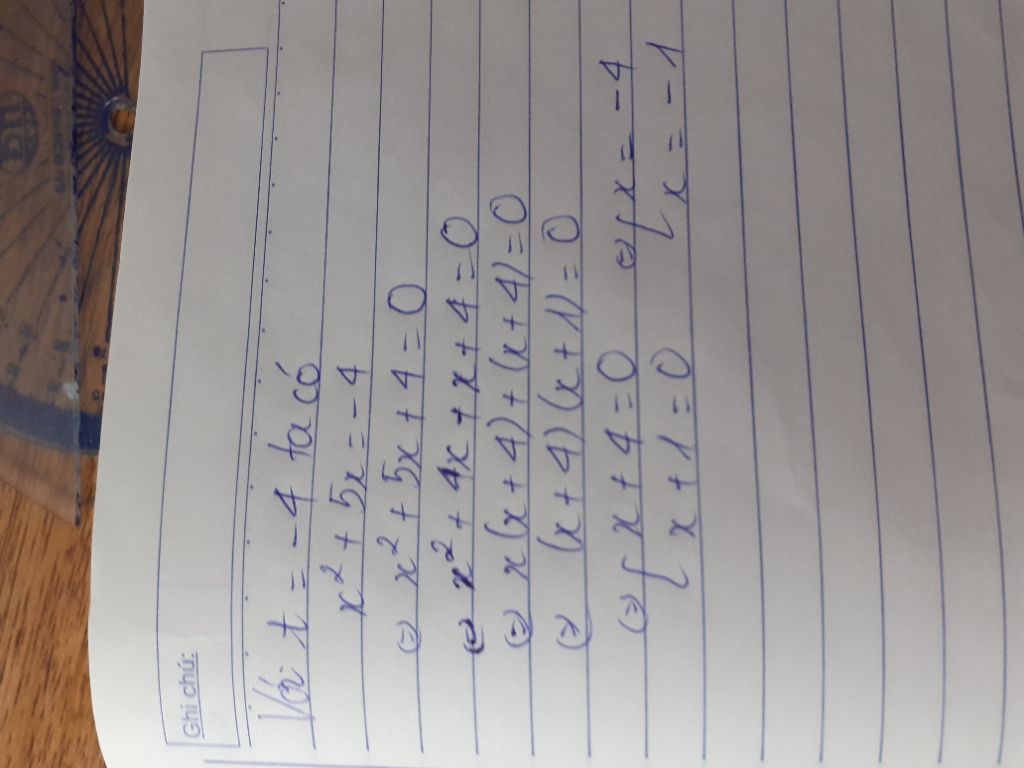 Ghi chú:
Với t = -4 ta có
x² + 5x = -4
(=) x² + 5x + 4 = 0
(=) x² + 4x + x + 4 = 0
(=) x(x + 4) + (x + 4) = 0
(=) (x + 4)(x + 1) = 0
(=) { x + 4 = 0 (=) { x = -4
{ x + 1 = 0 { x = -1